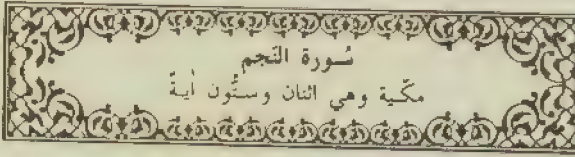 سورة النجم
مكّية وهي اثنان وستّون آية